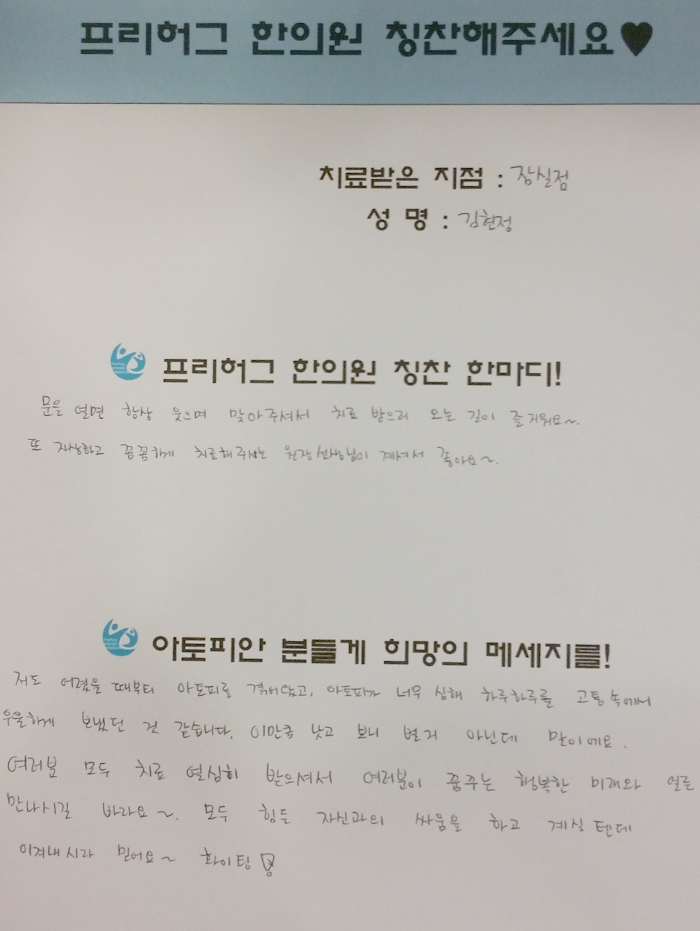 프리허그 한의원 칭찬해주세요♥
치료받은 지점 : 잠실점
성 명 : 김현정
프리허그 한의원 칭찬 한마디!
문을 열면 항상 웃으며 맞아주셔서 치료 받으러 오는 길이 즐거워요~.
또 자상하고 꼼꼼하게 치료해주시는 원장선생님이 계셔서 좋아요~.
아토피안 분들게 희망의 메세지를!
저도 어렸을 때부터 아토피를 겪어왔고, 아토피가 너무 심해 하루하루를 고통속에서
우울하게 보냈던 건 같습니다. 이만큼 낫고 보니 별거 아닌데 말이에요.
여러분 모두 치료 열심히 받으셔서 여러분이 꿈꾸는 행복한 미래와 얼른
만나시길 바라요~. 모두 힘든 자신과의 싸움을 하고 계실텐데
이겨내시라 믿어요~ 화이팅